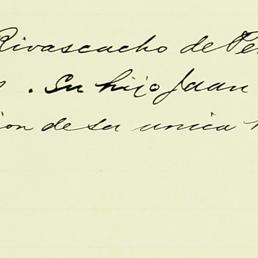 Rivascacho de Pe
. Su hijo Juan
ion de su unica h